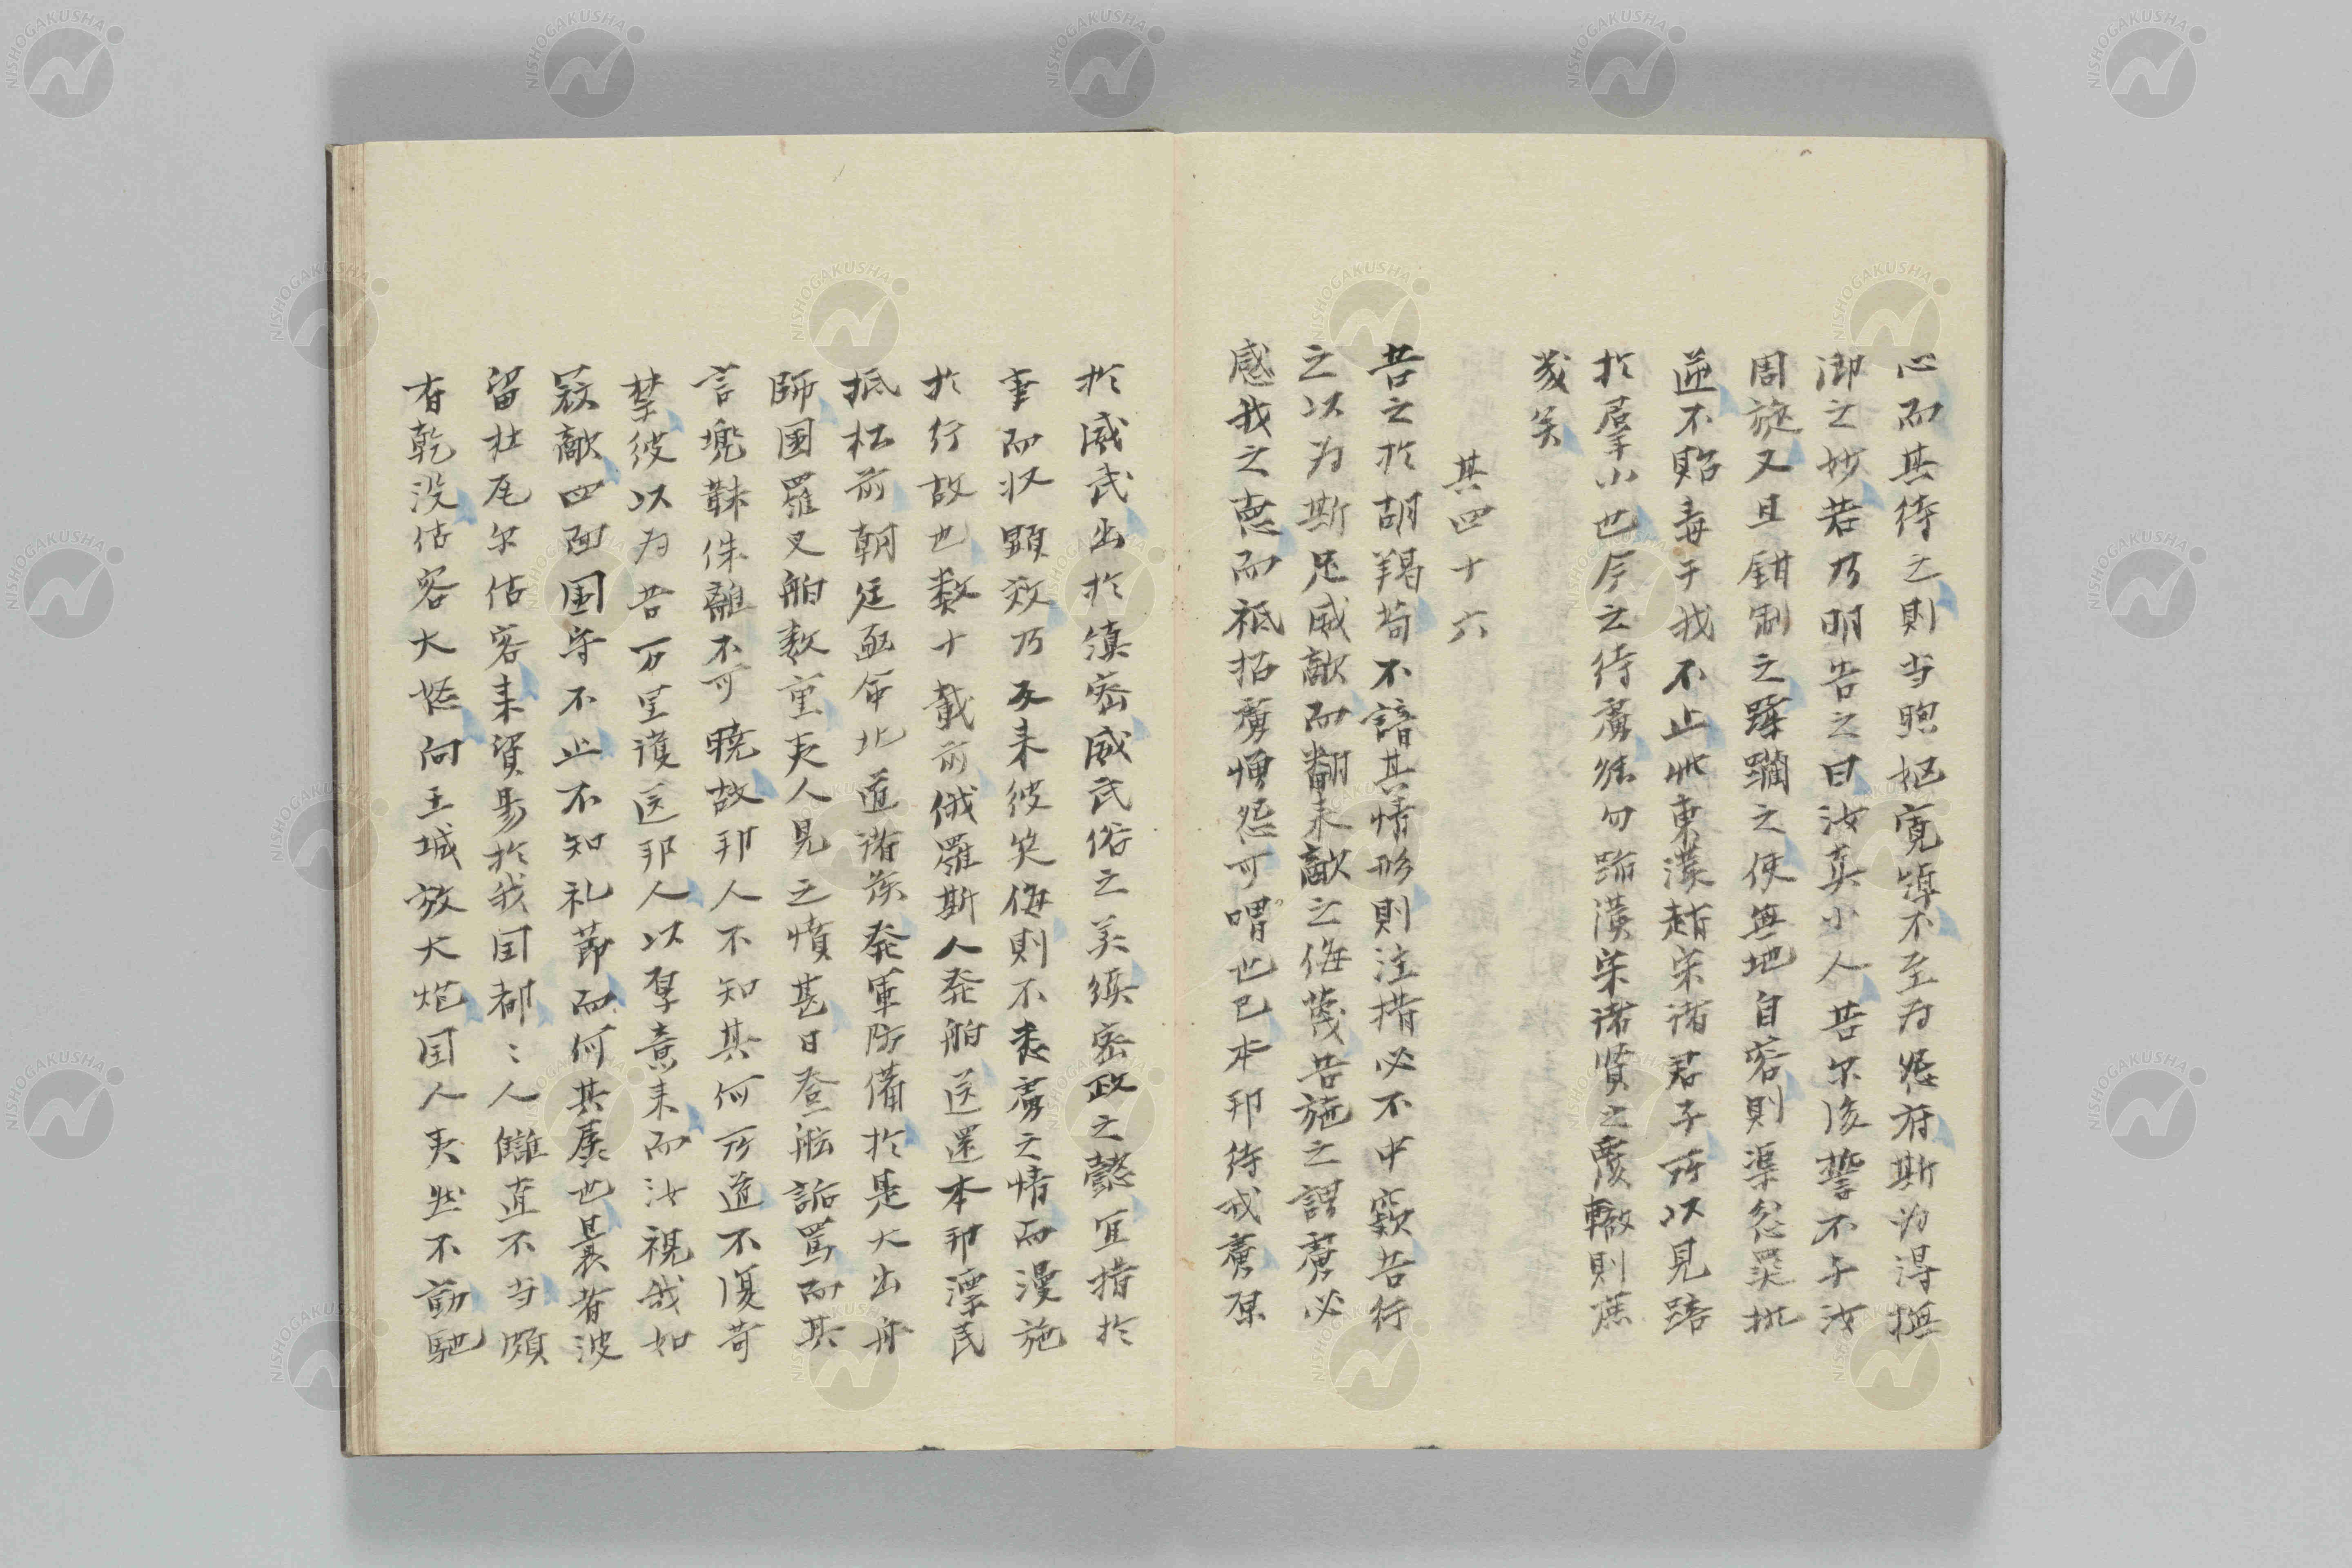 心而其待之則当煦妪寛遉不至为怨府斯为得撫
御之妙若乃明告之曰汝真小人吾尔後誓不与汝
周旋又且鉗制之蹂躙之使無地自容則渠忿罢批
逆不貽毒于我不止此東漢趙宋諸君子所以見踣
於羣小也今之待虜絓勿蹈漢宋諸賢之覆轍則庶
幾矣
其四十六
吾之於胡羯苟不諳其情形則注措必不中窾吾行
之以为斯足威敵而翻来敵之侮蔑吾施之謂虜必
感我之恵而祗招虜憎怨可喟也已本邦待戎虜原
於威武出於縝密威武俗之美縝密政之懿宜措於
事而収顕效乃反来彼笑侮則不悉虜之情而漫施
於行故也数十載前俄羅斯人発舶送還本邦漂民
抵松前朝廷亟命北道諸侯発軍防備於是大出舟
師囲羅叉舶数重夷人見之憤甚日登舷詬罵而其
言兜靺侏離不可曉故邦人不知其何所道不復苛
禁彼以为吾万里護送邦人以厚意来而汝視我如
寇敵四面囲守不止不知礼節而何其孱也曩者波
留杜尾尔估客来貿易於我国都〻人讎直不当頗
有乾没估客大恚向王城放大炮国人夷然不動馳